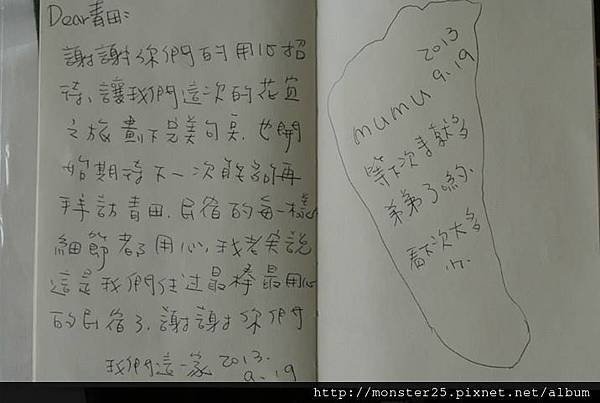 Dear青田:
謝謝你們的用心招
待,讓我們這次的花宜
之旅劃下完美句点.也開
始期待下一次能夠再
拜訪青田.民宿的每一樣
細節都了用心,我老笑說
這是我們住过最棒最用心
的民宿了.謝謝你們
我們這一家 2013.
9.19
2013
9.19
mumu
等下次手
弟弟了約.
看下次大多
http://monster25.pixnet.net/album